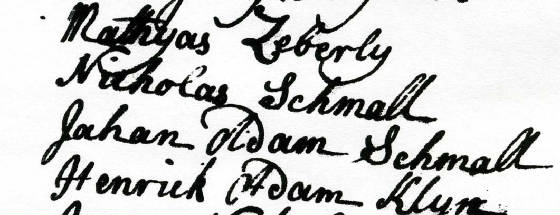 Mathyas Zeberly
Nicholas Schmall
Jahan Adam Schmall
Henrick Adam Klyne